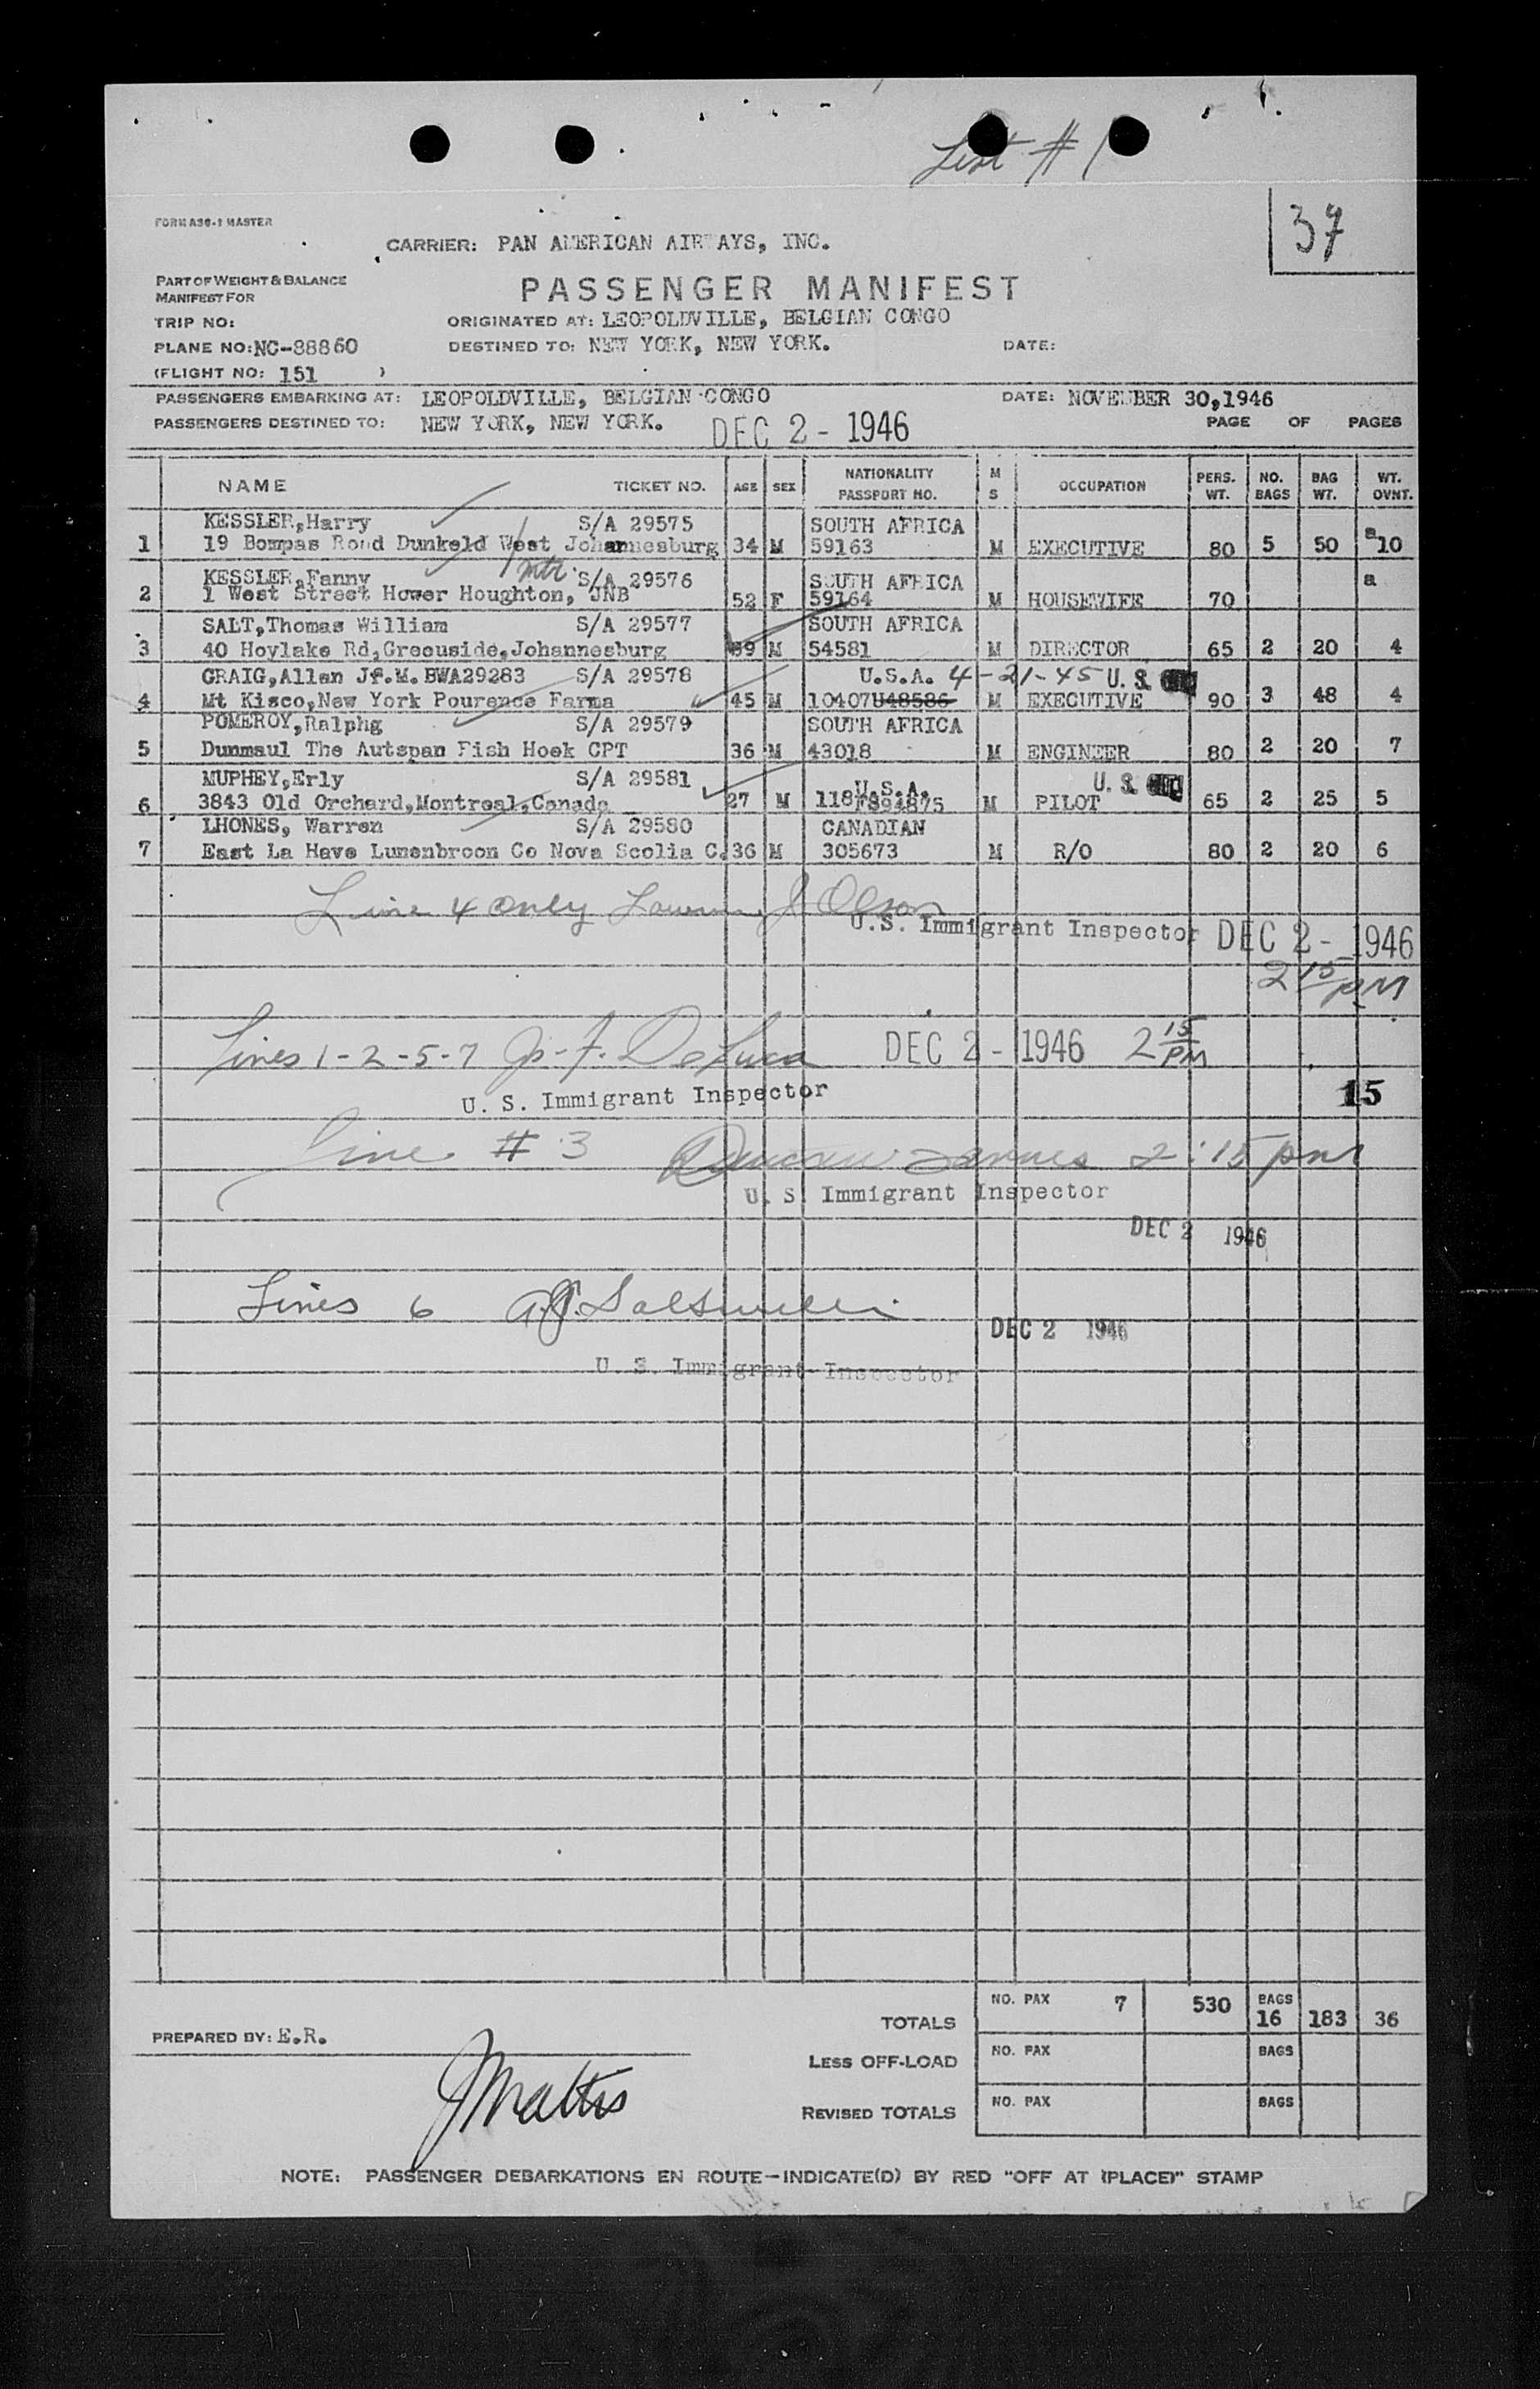 List # 1
37
FORM A30-1 MASTER
CARRIER: PAN AMERICAN AIRWAYS, INC.
PART OF WEIGHT & BALANCE
MANIFEST FOR
PASSENGER MANIFEST
TRIP NO:
ORIGINATED AT: LEOPOLDVILLE, BELGIAN CONGO
PLANE NO: NC-88860
DESTINED TO: NEW YORK, NEW YORK.
DATE:
(FLIGHT NO: 151 )
PASSENGERS EMBARKING AT: LEOPOLDVILLE, BELGIAN CONGO DATE: NOVEMBER 30,1946
PASSENGERS DESTINED TO: NEW YORK, NEW YORK. DEC 2 - 1946 PAGE OF PAGES
NAME TICKET NO. AGE SEX NATIONALITY PASSPORT NO. M S OCCUPATION PERS. WT. NO. BAGS BAG WT. WT. OVNT.
KESSLER,Harry S/A 29575 SOUTH AFRICA a
1 19 Bompas Road Dunkeld West Johannesburg 34 M 59163 M EXECUTIVE 80 5 50 10
mtr
KESSLER,Fanny S/A 29576 SOUTH AFRICA a
2 1 West Street Hower Houghton, JNB 52 F 59164 M HOUSEWIFE 70
SALT,Thomas William S/A 29577 SOUTH AFRICA
3 40 Hoylake Rd,Greeuside,Johannesburg 39 M 54581 M DIRECTOR 65 2 20 4
GRAIG,Allen Jf.M.BWA29283 S/A 29578 U.S.A. 4-21-45 U. S.
4 Mt Kisco,New York Pourence Farma 45 M 10407U48586 M EXECUTIVE 90 3 48 4
POMEROY,Ralphg S/A 29579 SOUTH AFRICA
5 Dunmaul The Autspan Fish Hoek CPT 36 M 43018 M ENGINEER 80 2 20 7
MUPHEY,Erly S/A 29581 U.S.A. U. S.
6 3843 Old Orchard,Montreal,Canada 27 M M PILOT 65 2 25 5
LHONES, Warren S/A 29580 CANADIAN
7 East La Have Lunenbroon Co Nova Scolia C. 36 M 305673 M R/O 80 2 20 6
Line 4 only J Olson
U.S. Immigrant Inspector DEC 2 - 1946
2 15 PM
Lines 1-2-5-7 J. F. DeLuca DEC 2 - 1946 2 15 PM
U. S. Immigrant Inspector
15
Line # 3 2:15 pm
U. S. Immigrant Inspector
DEC 2 1946
Lines 6
DEC 2 1946
U. S. Immigrant Inspector
TOTALS NO. PAX 7 530 BAGS 16 183 36
PREPARED BY: E.R.
LESS OFF-LOAD NO. PAX BAGS
REVISED TOTALS NO. PAX BAGS
NOTE: PASSENGER DEBARKATIONS EN ROUTE—INDICATE(D) BY RED "OFF AT (PLACE)" STAMP